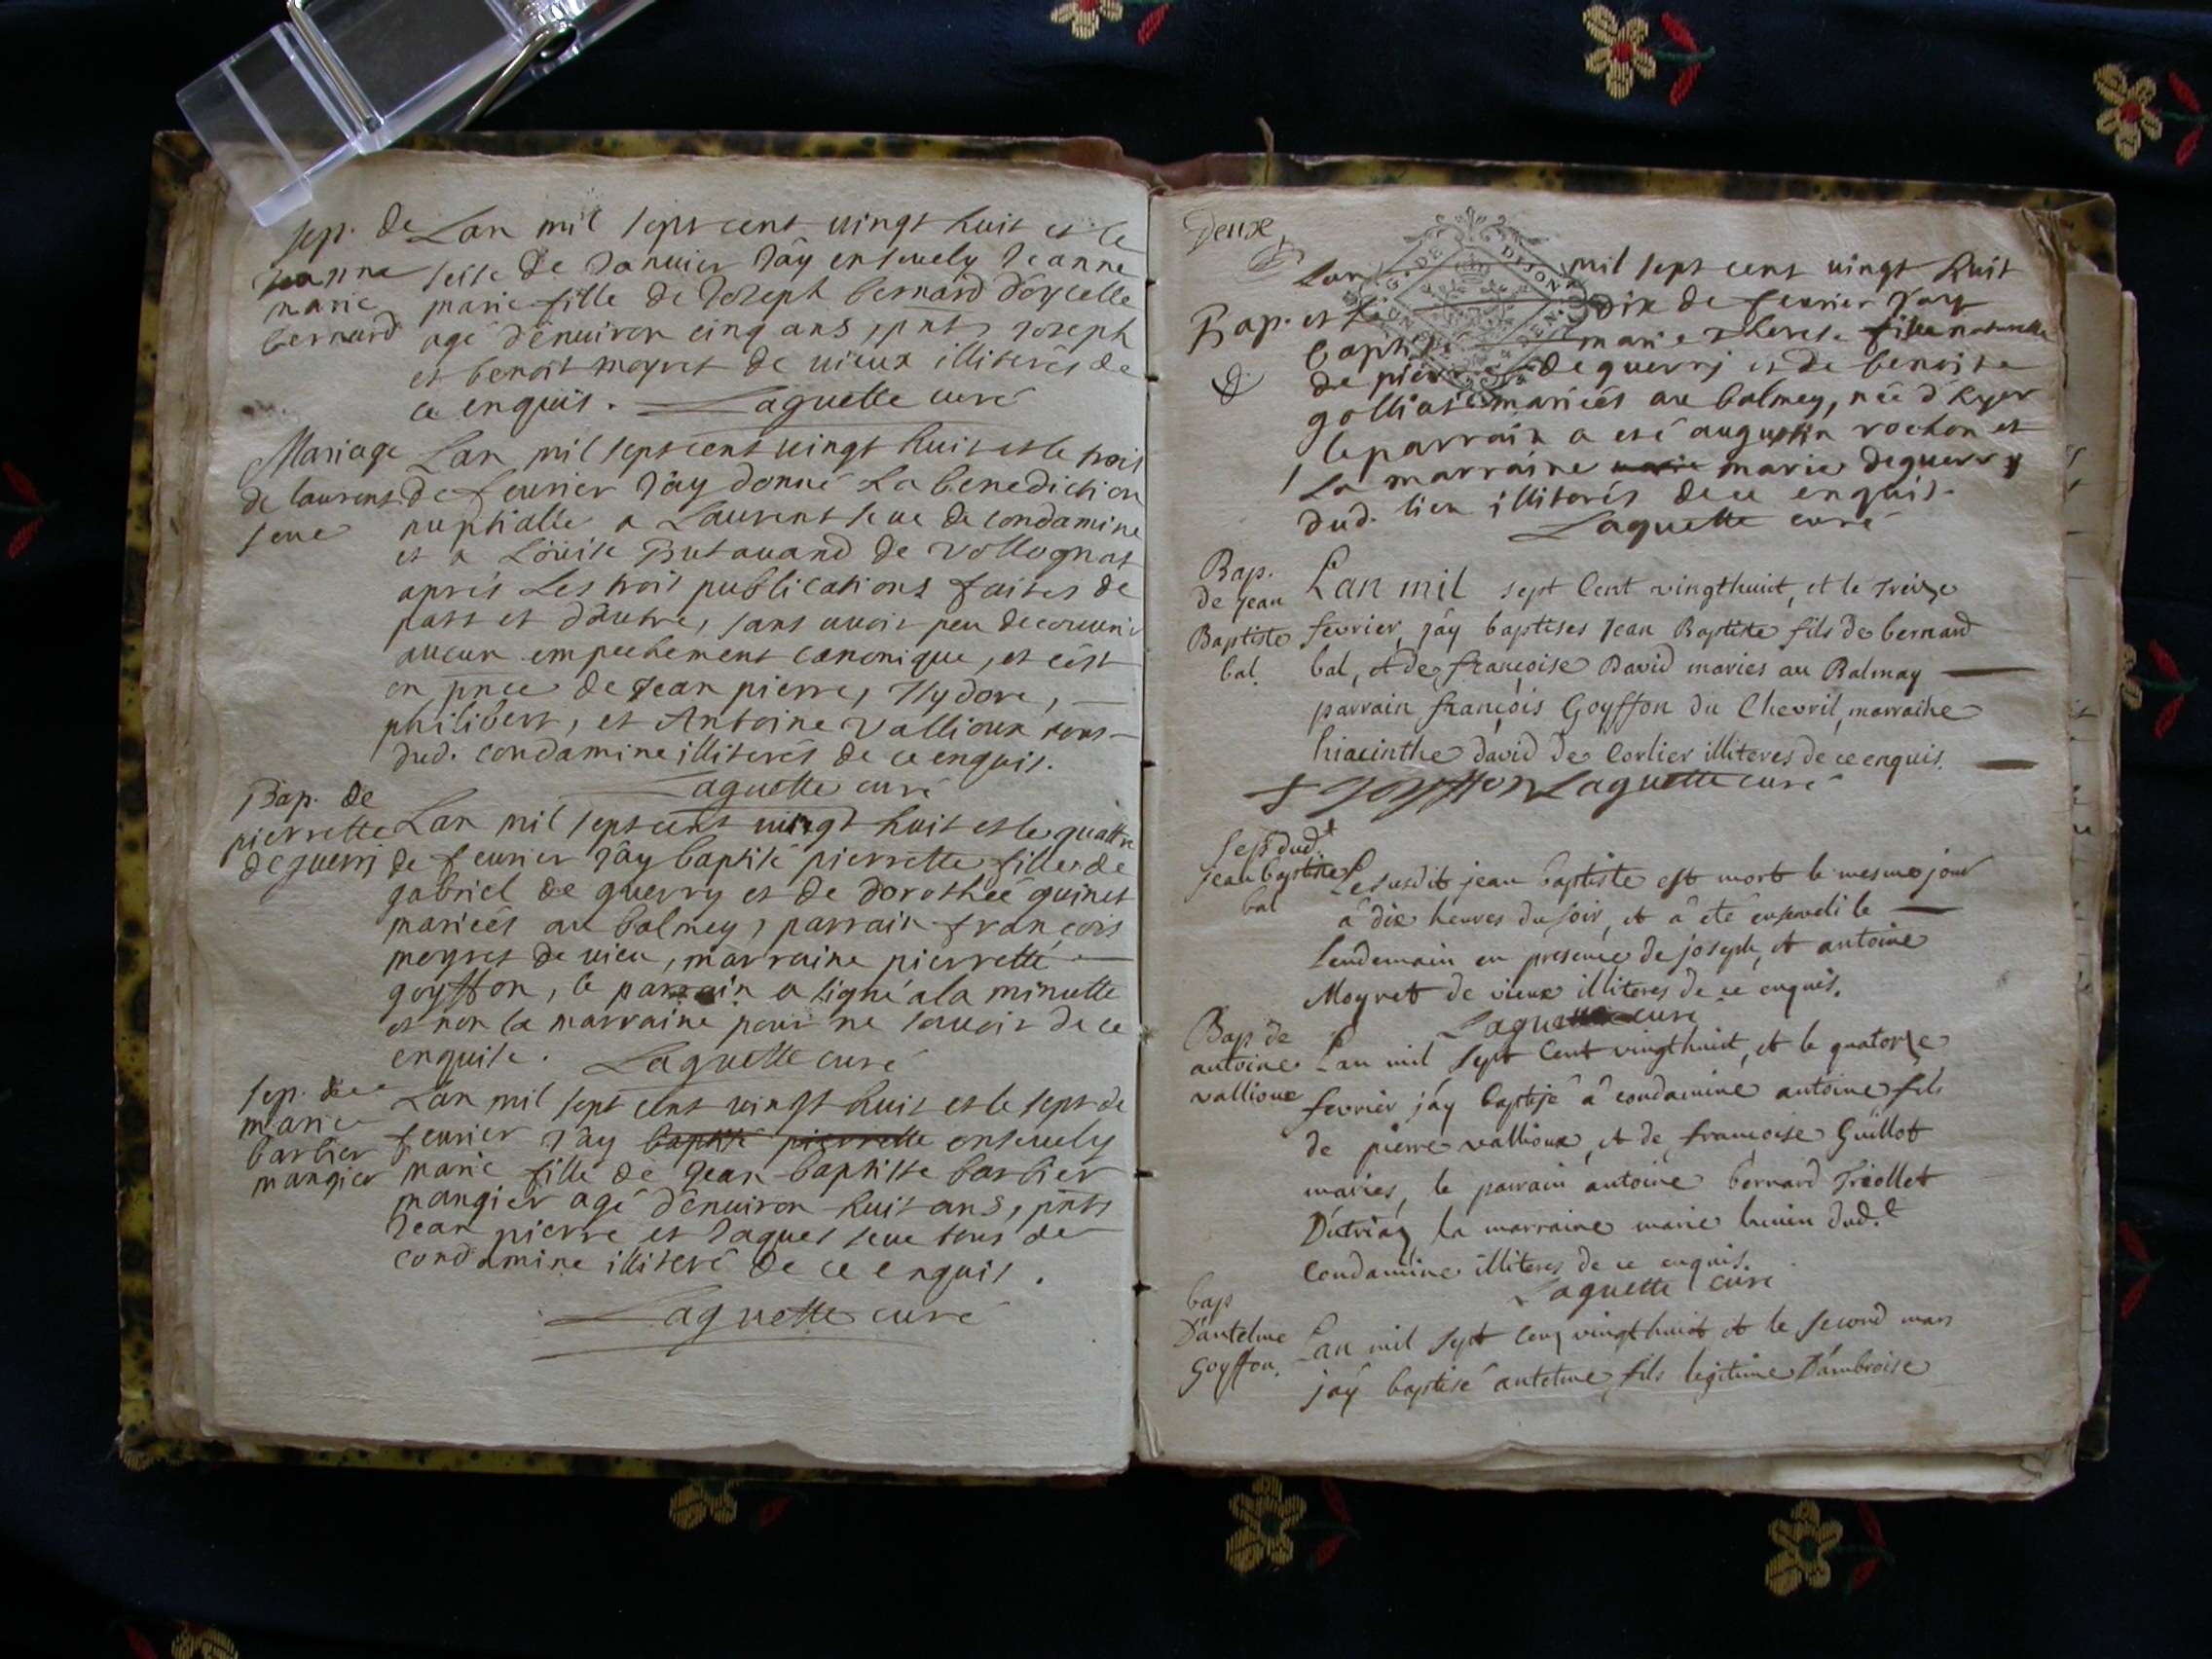 Sep. de
Jeanne
marie
bernard
Lan mil sept cent vingt huit et le
seise de Janvier Jáy ensevely Jeanne
marie fille de Joseph bernard d'oycelle
agé d'environ cinq ans, pnts Joseph
et benoit moyret de vieux illiterés de
ce enquis. Laguette curé
Mariage
de laurens
seve
Lan mil sept cent vingt huit et le trois
de fevrier Jáy donné La benediction
nuptialle a Laurent seve de condamine
et a Loüise Butavand de Vollognat
aprés Les trois publications faites de
part et d'autre, sans avoir peu decouvrir
aucun empechement canonique, et c'est
en pnce de Jean pierre, Hydore,
philibert, et Antoine Vallioux tous
dud. condamine illiterés de ce enquis.
Laguette curé
Bap. de
pierrette
deguerri
Lan mil sept cent vingt huit et le quattre
de fevrier Jáy baptisé pierrette fille de
gabriel de guerry et de dorothée guinet
mariées au balmey, parrain francois
moyret de vieu, marraine pierrette
goyffon, le parrain a signé a la minutte
et non la marraine pour ne savoir de ce
enquise. Laguette curé
Sep. de
marie
barbier
mangier
Lan mil sept cent vingt huit et le sept de
fevrier Jáy baptisé pierrette ensevely
marie fille de Jean baptiste barbier
mangier agé d'environ huit ans, pnts
Jean pierre et Jaques seve tous de
condamine illiteré de ce enquis.
Laguette curé
Deux
G. DE DIJON
Bap.
Lan mil sept cent vingt huit
et le dix de fevrier Jáy
baptisé marie therese fille naturelle
de pierre deguerri et de benoite
golliat mariées au balmey, née d'hyer
le parrain a esté augustin rochon et
La marraine marie marie deguerry
dud. lieu illiterés de ce enquis.
Laguette curé
Bap.
de Jean
Baptiste
bal.
Lan mil sept Cent vingthuit, et le treize
fevrier, jáy baptises Jean Baptiste fils de bernard
bal, et de françoise David maries au Balmay
parrain françois Goyffon du Chevril, marraine
hiacinthe david de Corlier illiteres de ce enquis.
f goyffon Laguette curé
Sep. dud.t
Jean baptiste
bal
Le susdit jean baptiste est mort le mesme jour
á dix heures du soir, et á eté enseveli le
lendemain en presence de joseph, et antoine
Moyret de vieux illiteres de ce enquis.
Laguette curé
Bap de
antoine
vallioux
Lan mil sept Cent vingthuit, et le quatorze
fevrier jáy baptisé á condamine antoine fils
de pierre vallioux, et de françoise Guillot
maries, le parrain antoine bernard Triollet
D'utriaz la marraine marie humin dud.t
Condamine illiteres de ce enquis.
Laguette curé
bap
D'antelme
Goyffon.
Lan mil sept cent vingthuit et le second mars
jáy baptisé antelme fils legitime D'ambroise